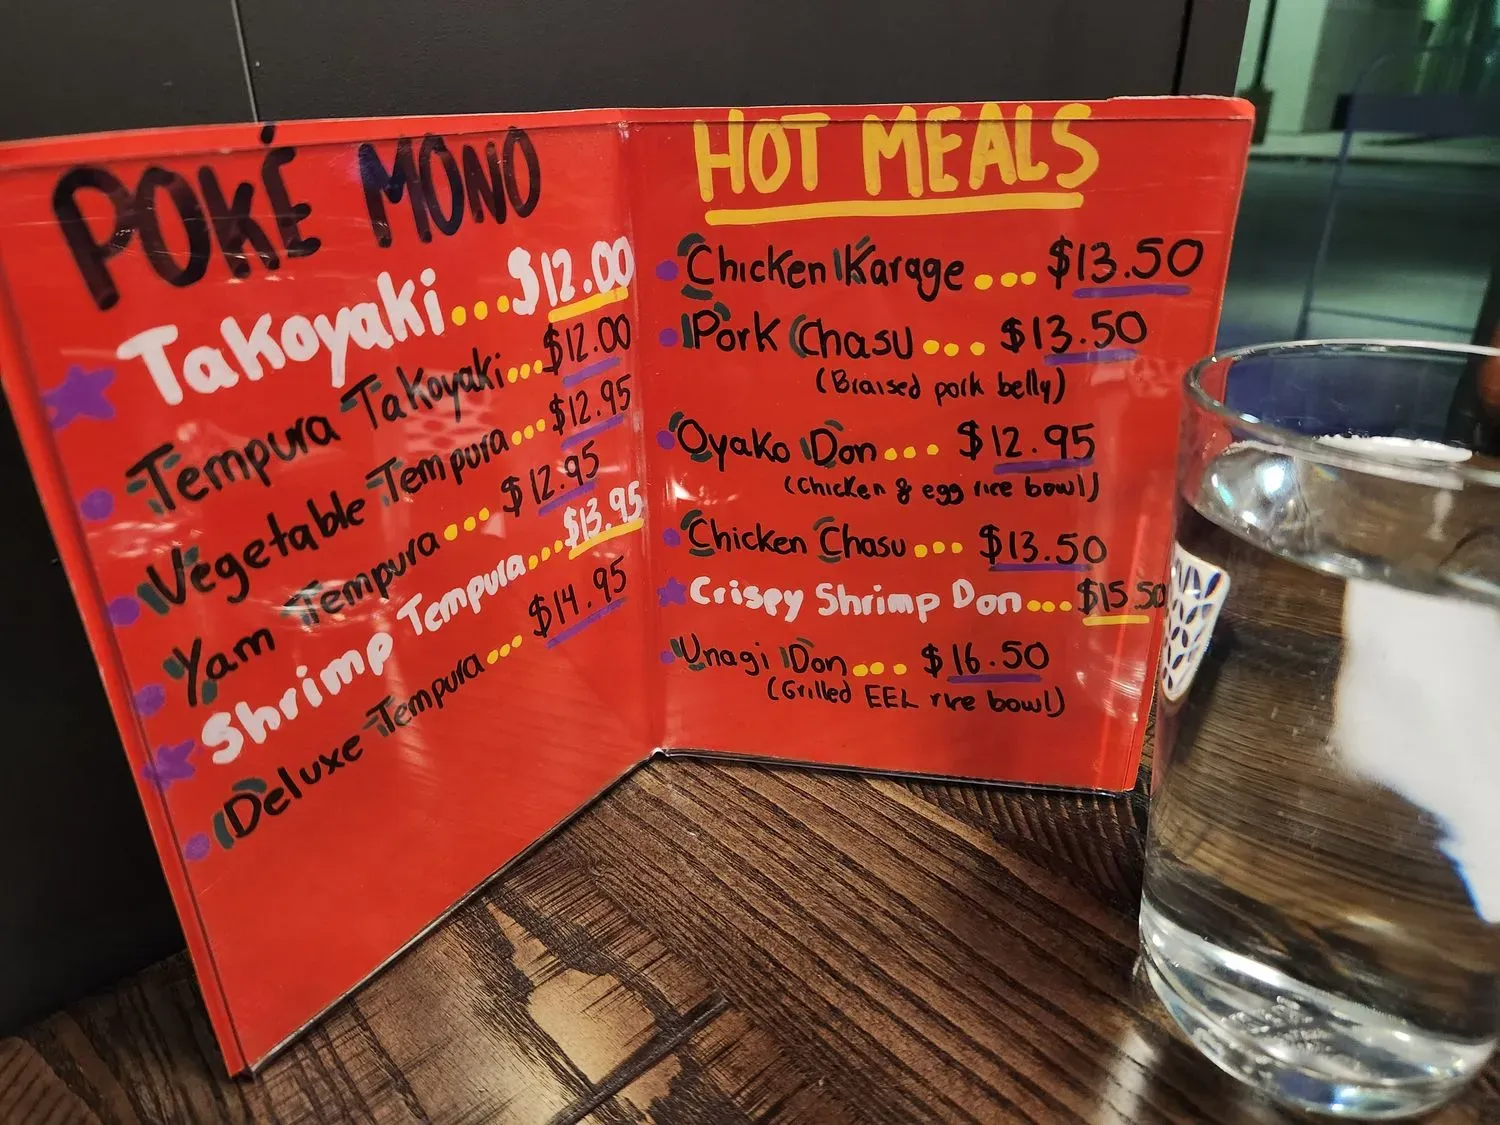 POKÉ MONO
Takoyaki...$12.00
Tempura Takoyaki...$12.00
Vegetable Tempura...$12.95
Yam Tempura...$12.95
Shrimp Tempura...$13.95
Deluxe Tempura...$14.95
HOT MEALS
Chicken Karage...$13.50
Pork Chasu...$13.50
(Braised pork belly)
Oyako Don...$12.95
(Chicken & egg rice bowl)
Chicken Chasu...$13.50
Crispy Shrimp Don...$15.50
Unagi Don...$16.50
(Grilled EEL rice bowl)